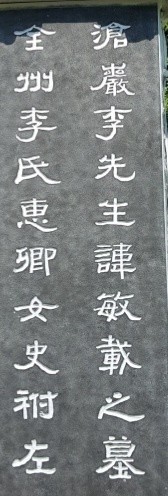 滄巖李先生諱敏載之墓
全州李氏惠卿女史祔左